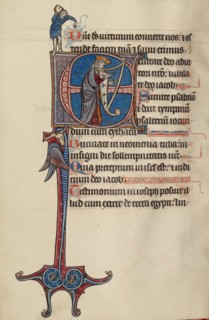 Dñe ds virtutum converte nos: & os
tende faciem tuā & salvi erimus.
Exultate deo adiu
tori nrō: iubila
te deo iacob.
Sumite psalmū
& date tympanū
psalterium iocun
dum cum cythara.
Buccinate in neomenia tuba: in
insigni die sollempnitatis
Quia preceptum in isrl est: & iudi
cium deo iacob.
Testimonium in ioseph posuit
illud cum exiret de terra egypti: